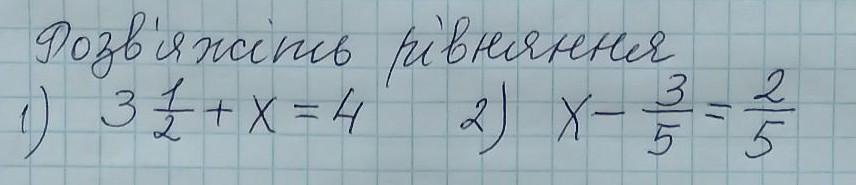 Розв'яжіть рівняння
1) 3 1/2 + x = 4 2) x - 3/5 = 2/5